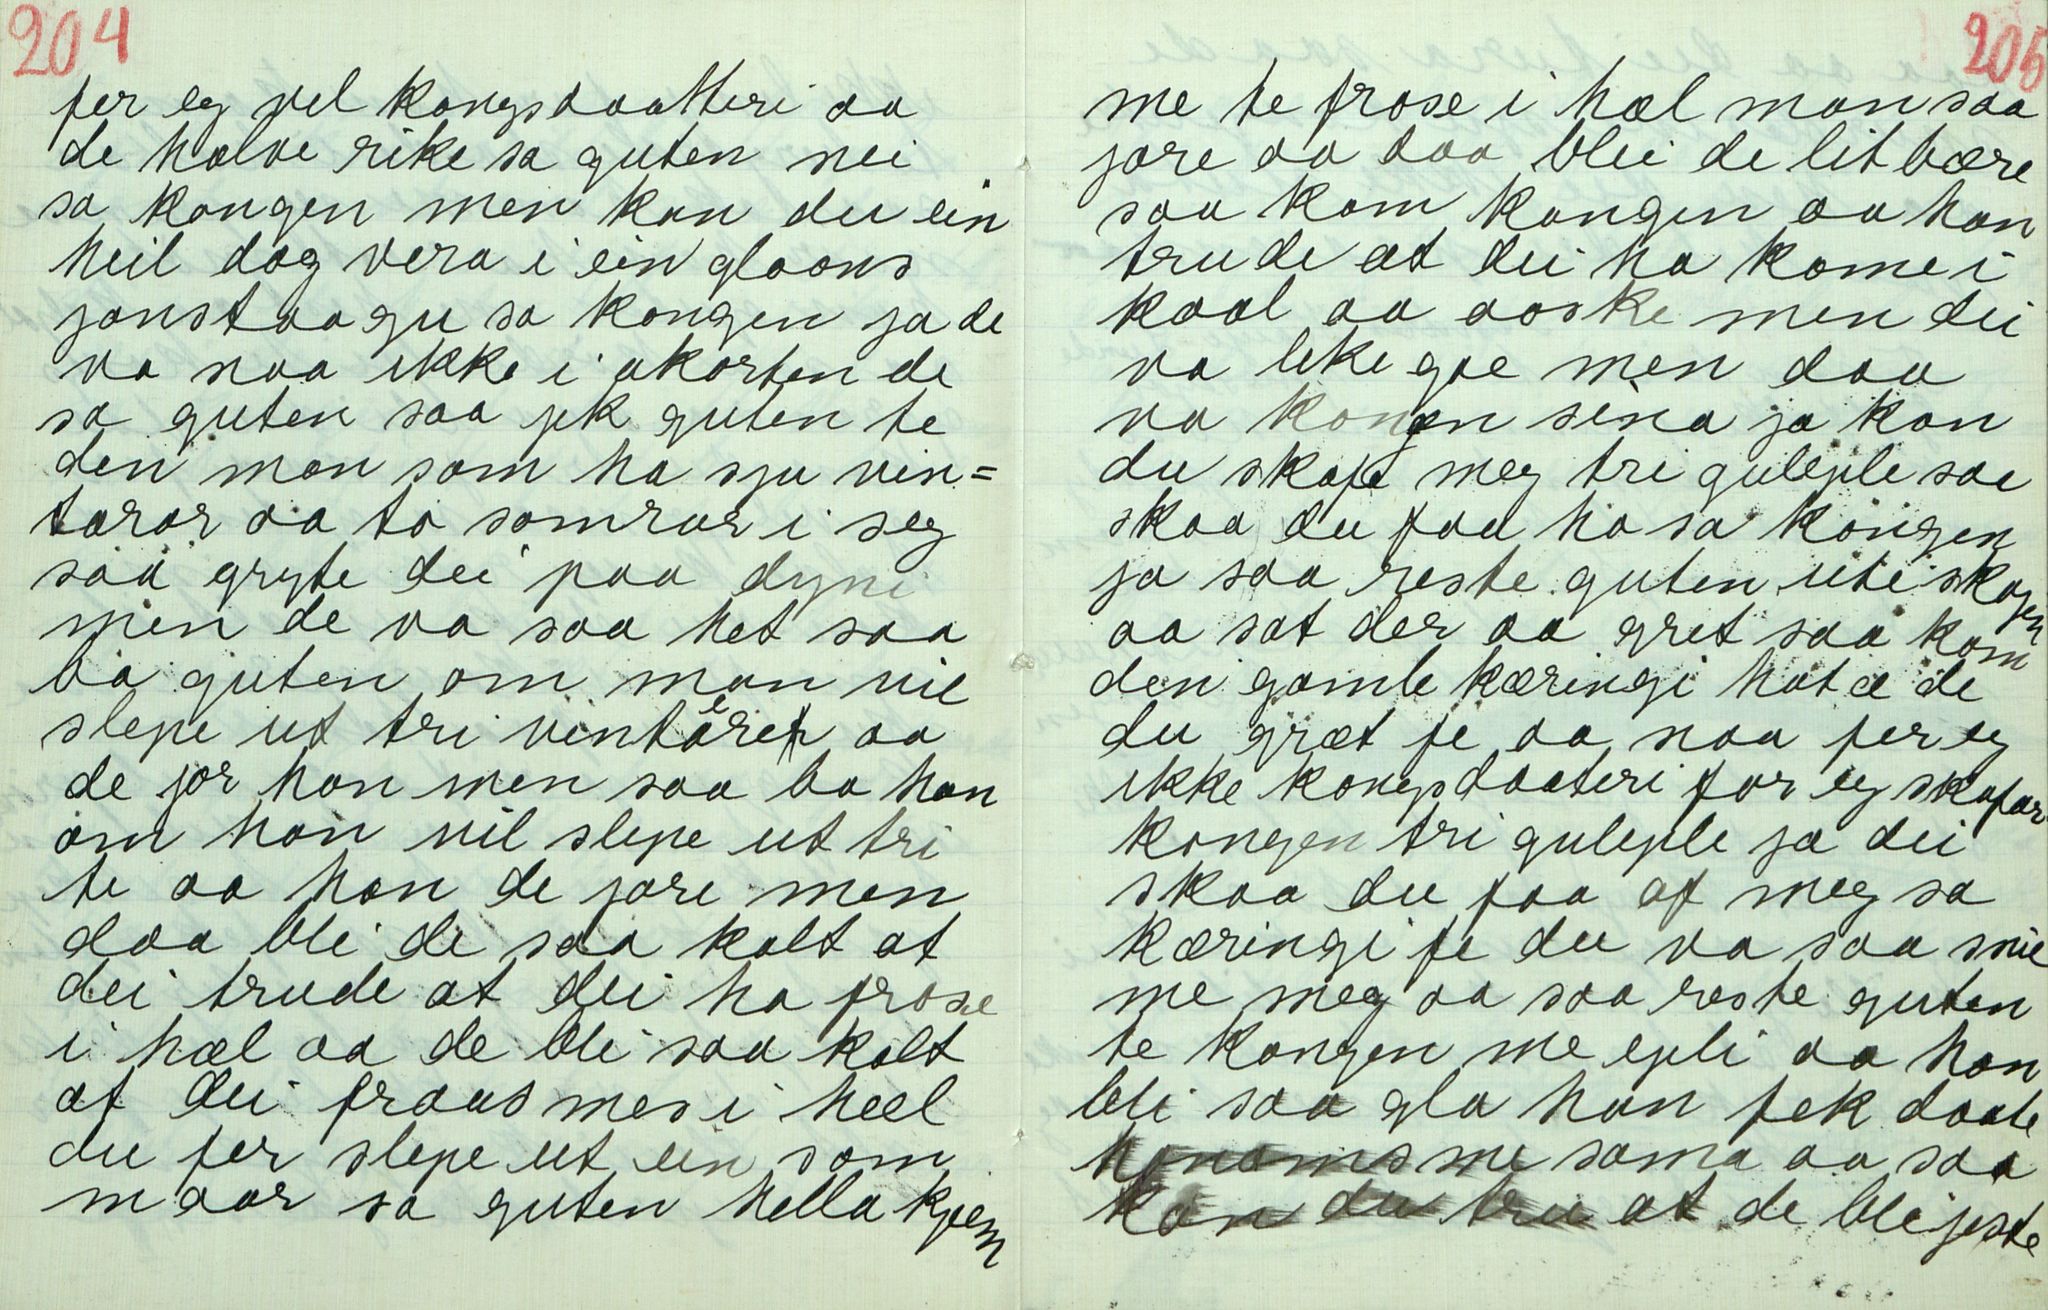 204
fer eg vel kongsdaatteri aa
de halve rike sa guten nei
sa kongen men kan du ein
heil dag vera i ein gloans
janstaagu sa kongen ja de
va naa ikke i akorten de
sa guten saa jek guten te
den man som ha sju vin=
tarar aa to somrar i seg
saa gryte dei paa dyni
men de va saa het saa
ba guten om man vil
slepe ut tri vintårer aa
de jor han men saa ba han
om han vil slepe ut tri
te aa han de jore men
daa blei de saa kalt at
dei trude at dei ha frose
i hæl aa de blei saa kalt
at dei fraus mes i heel
du fer slepe ut ein som
maar sa guten hella kjem
205
me te frose i hæl man saa
jore aa daa blei de lit bære
saa kom kongen aa han
trude at dei ha kome i
kaal aa aoske men dei
va like goe men daa
va kongen sina ja kan
du skafe meg tri guleple sae
skaa du faa ho sa kongen
ja saa reste guten ute i skogen
aa sat der aa gret saa kom
den gamle kæringi hat æ de
du græt fe aa naa fer eg
ikke kongsdaateri for eg skafar
kongen tri guleple ja dei
skaa du faa af meg sa
kæringi fe du va saa snil
me meg aa saa reste guten
te kongen me epli aa han
blei saa gla han fek daate
honoms me sama aa saa
kan du tru at de blei jeste